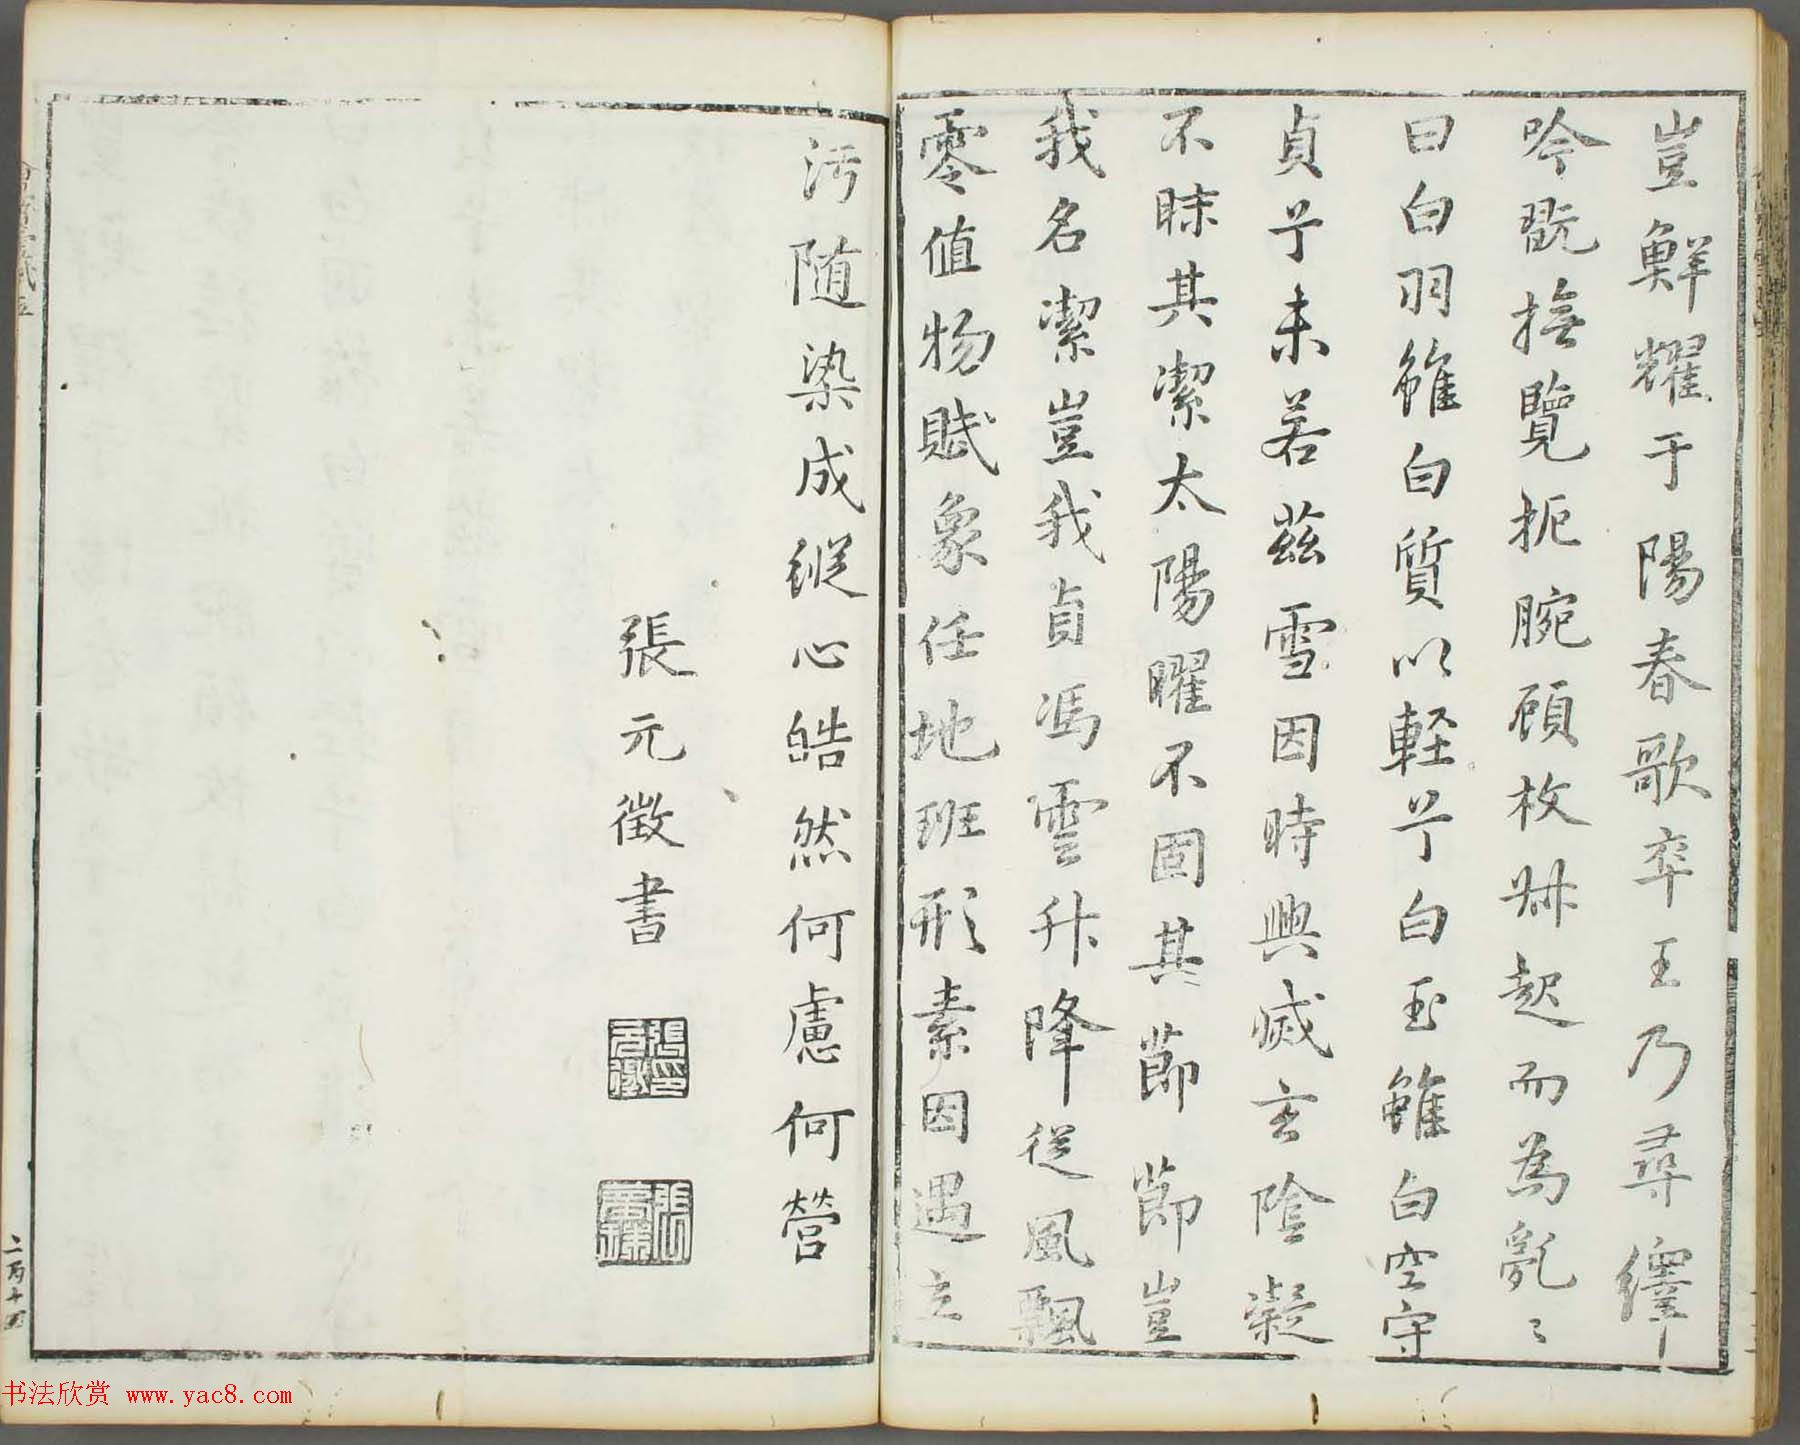 豈鮮耀于陽春歌卒王乃尋繹
吟翫撫覽扼腕顧枚叔起而為亂亂
曰白羽雖白質以軽兮白玉雖白空守
貞兮未若茲雪因時興滅玄陰凝
不昧其潔太陽曜不固其節節豈
我名潔豈我貞馮雲升降從風飄
零值物賦象任地班形素因遇立
污随染成縱心皓然何慮何營
張元徵書
二丙十四
书法欣赏 www.yac8.com